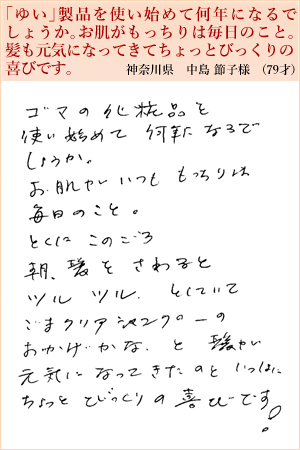 「ゆい」製品を使い始めて何年になるで
しょうか。お肌がもっちりは毎日のこと。
髪も元気になってきてちょっとびっくりの
喜びです。 神奈川県 中島 節子様 (79才)
ゴマの化粧品を
使い始めて 何年になるで
しょうか。
お肌がいつも もっちりは
毎日のこと。
とくに このごろ
朝、髪を さわると
ツル ツル. としていて
ごまクリアシャンプーの
おかげかな. と 髪が
元気になってきたのと いっしょに
ちょっと びっくりの 喜びです!